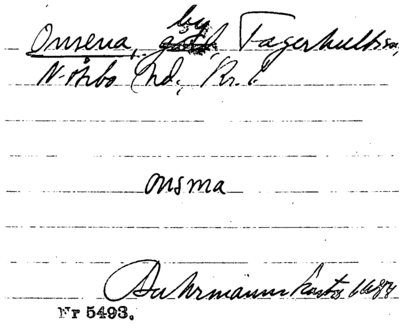 Onsena, by, Fagerhults sn,
N. Åsbo hd, Kr. l.
onsma
Buhrmanns karta
Nr 5493.